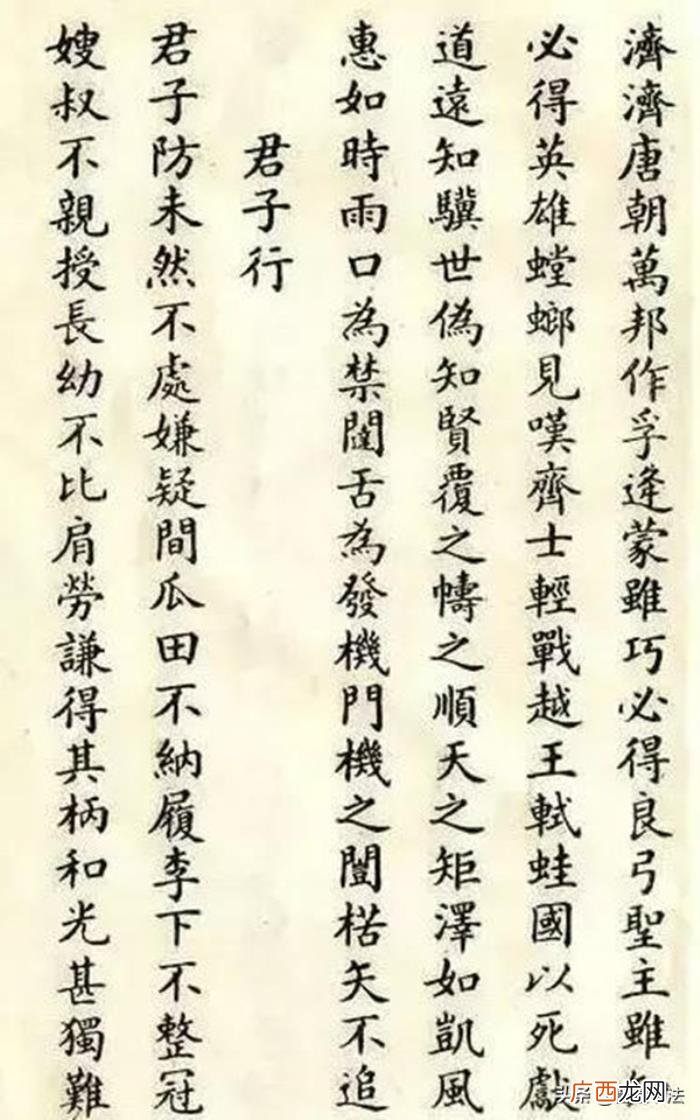 濟濟唐朝萬邦作孚逢蒙雖巧必得良弓聖主雖
必得英雄螳螂見嘆齊士輕戰越王軾蛙國以死獻
道遠知驥世偽知賢覆之幬之順天之矩澤如凱風
惠如時雨口為禁闥舌為發機門機之闓楛矢不追
君子行
君子防未然不處嫌疑間瓜田不納履李下不整冠
嫂叔不親授長幼不比肩勞謙得其柄和光甚獨難
头条
法
广西龙网